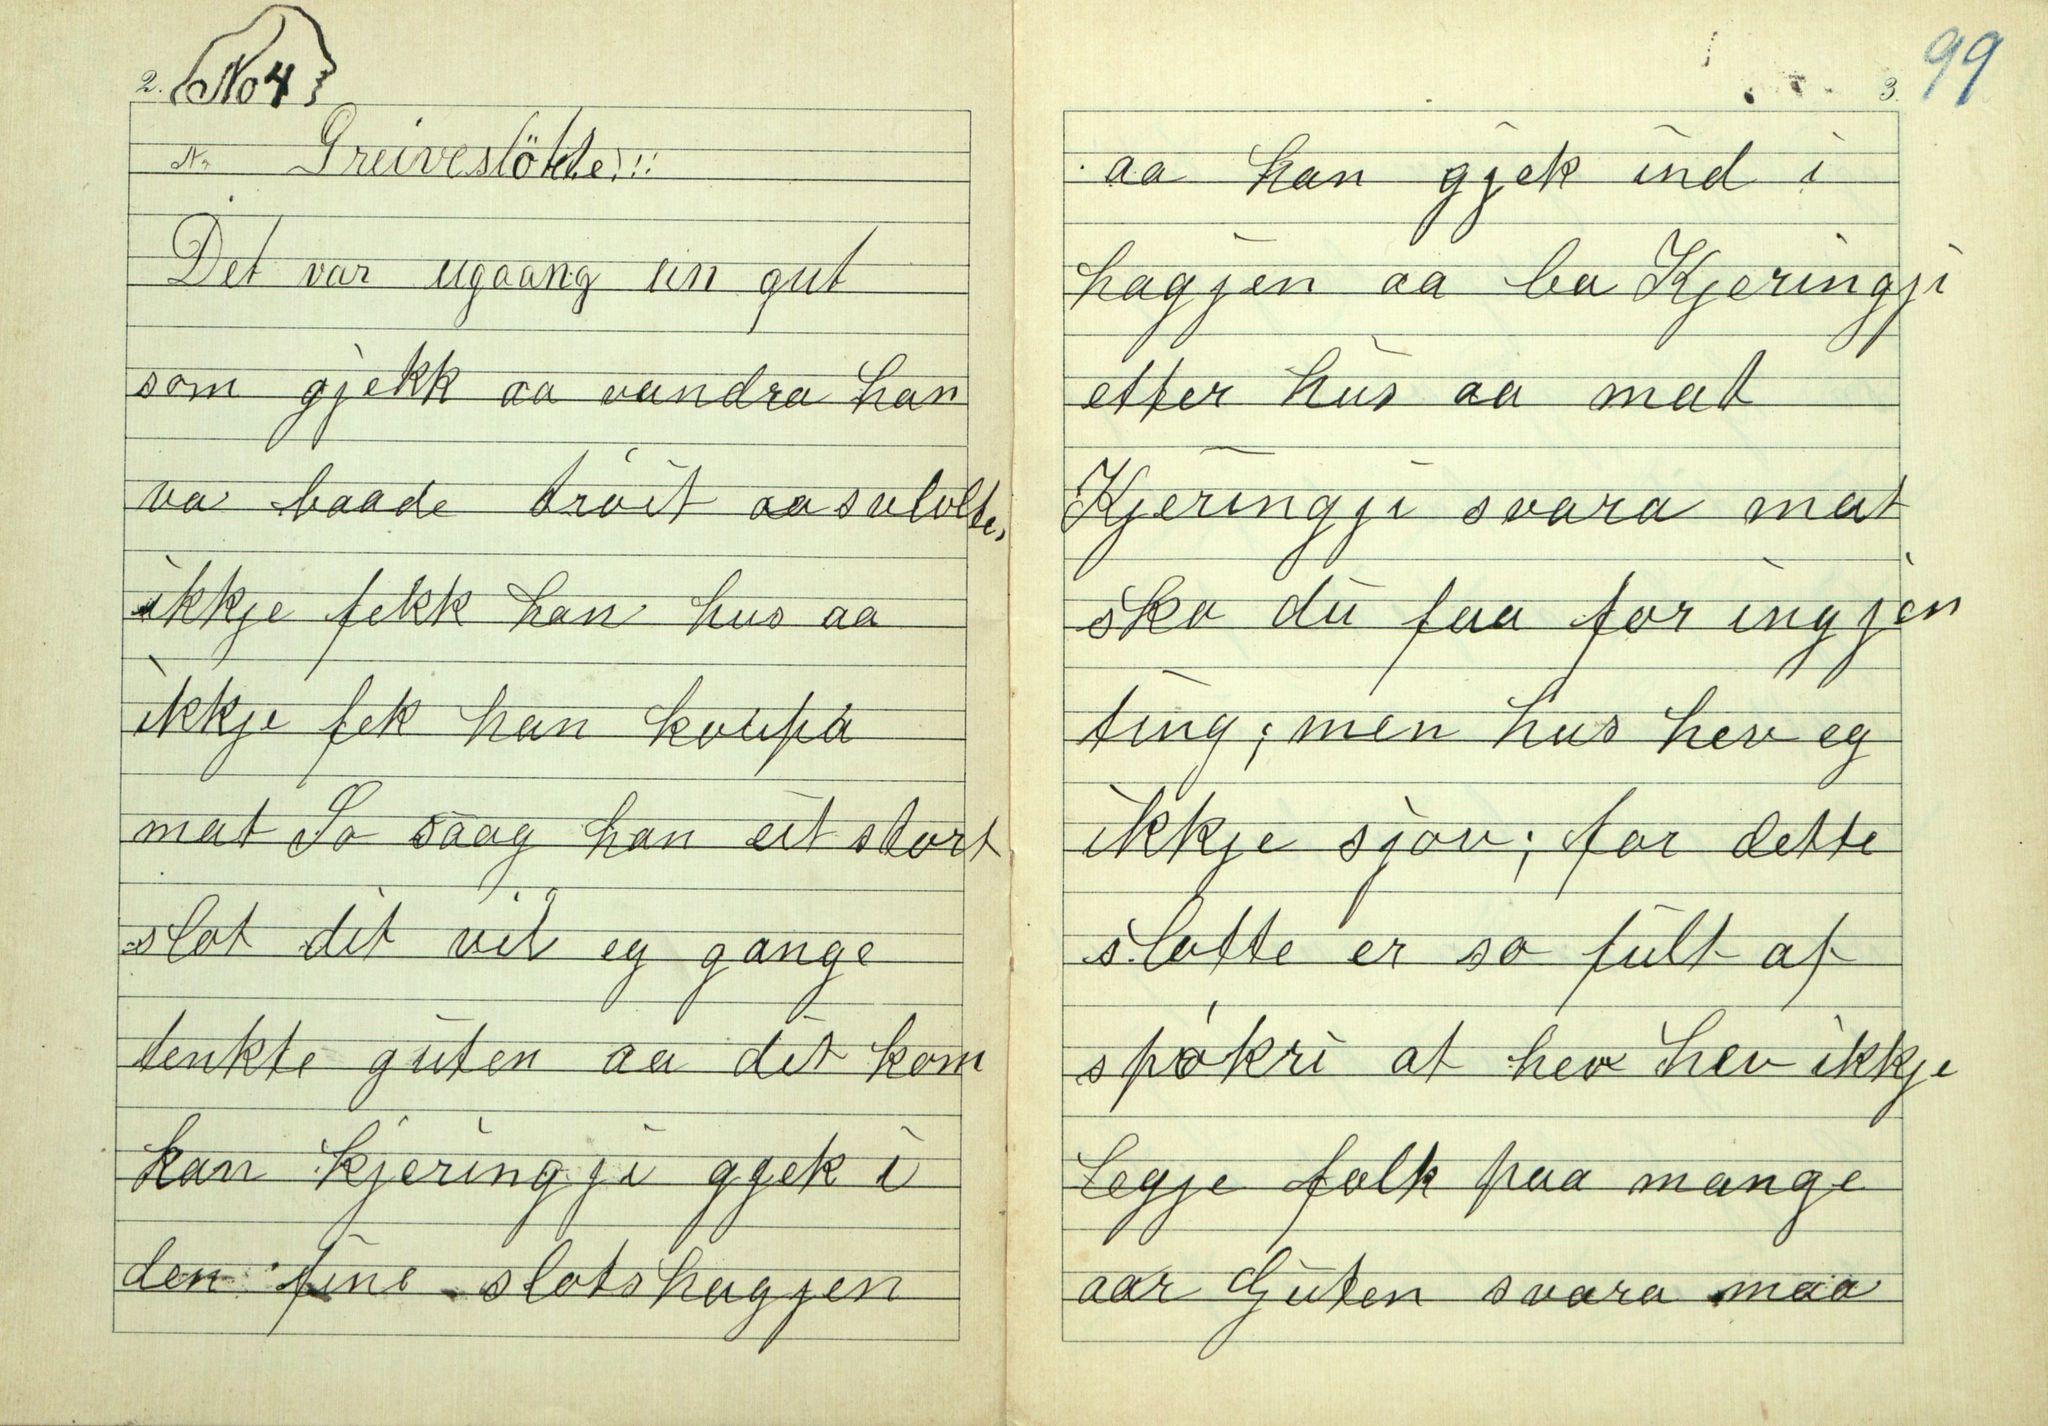 2. No 4
Nr Greiveslötte!!!
Det var eigaang ein gut
som gjekk aa vandra han
va baade tröit aa svolte,
ikkje fekk han hus aa
ikkje fek han koupa
mat So saag han eit stort
slot dit vil eg gange
tenkte guten aa dit kom
han kjeringji gjek i
den fine slotshagjen
3. 99
aa han gjek ind i
hagjen aa ba Kjeringji
etter hus aa mat
Kjeringji svara mat
sko du faa for ingjen
ting; men hus hev eg
ikkje sjøv; for dette
slotte er so fult af
spökri at her hev ikkje
legje folk paa mange
aar Guten svara maa